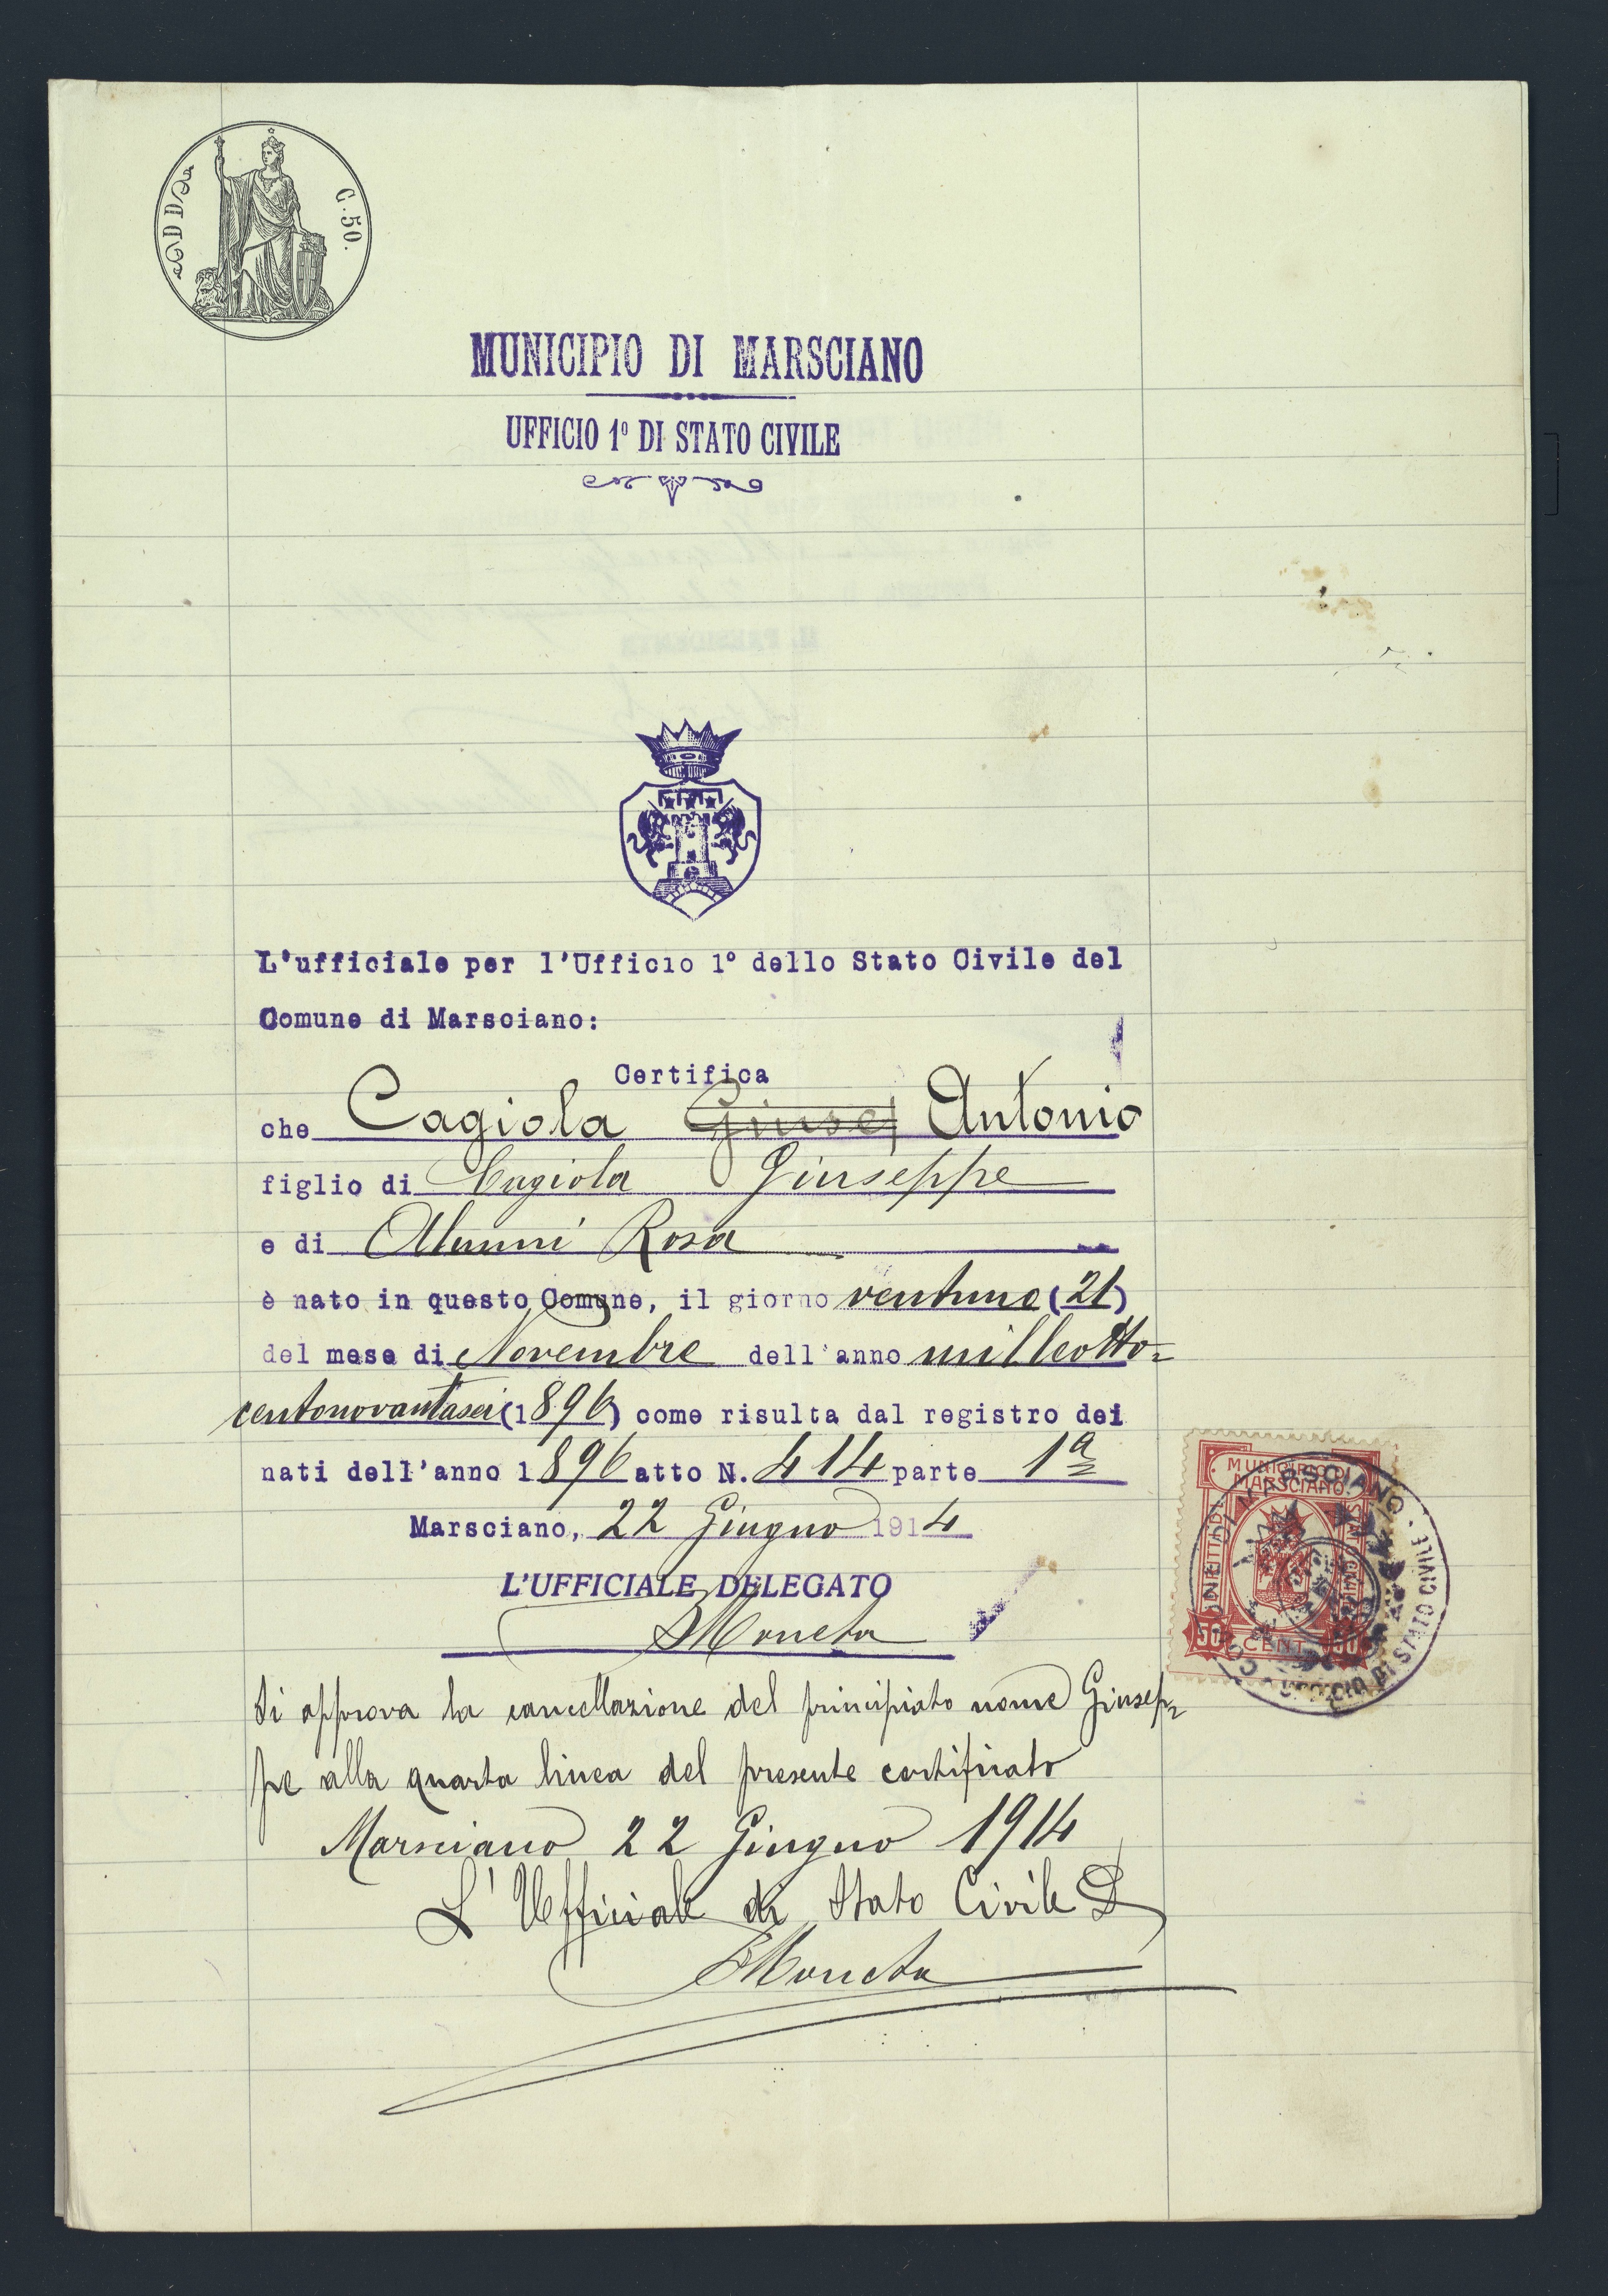 C. 50.
MUNICIPIO DI MARSCIANO
UFFICIO 1º DI STATO CIVILE
L'ufficiale per l'Ufficio 1º dello Stato Civile del
Comune di Marsciano:
Certifica
che Cagiola Giusep Antonio
figlio di Cagiola Giuseppe
e di Alunni Rosa
è nato in questo Comune, il giorno ventuno (21)
del mese di Novembre dell'anno milleotto=
centonovantasei (1896) come risulta dal registro dei
nati dell'anno 1896 atto N. 414 parte 1ª
Marsciano, 22 Giugno 1914
L'UFFICIALE DELEGATO
Moneta
MUNICIPIO DI
MARSCIANO
STATO CIVILE
50 CENT. 50
MARSCIANO
UFFICIO DI STATO CIVILE
Si approva la cancellazione del principiato nome Giusep=
pe alla quarta linea del presente certificato
Marsciano 22 Giugno 1914
L'Ufficiale di Stato Civile D
Moneta